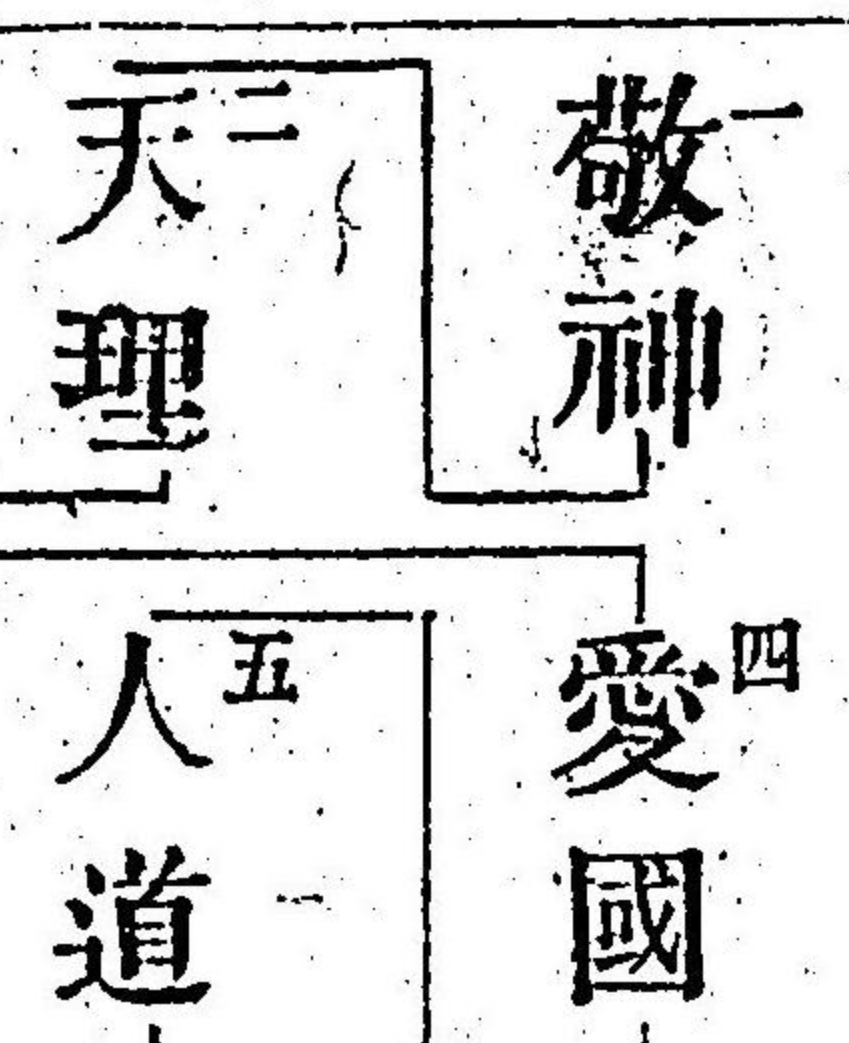 一
敬神
二
天理
四
愛國
五
人道